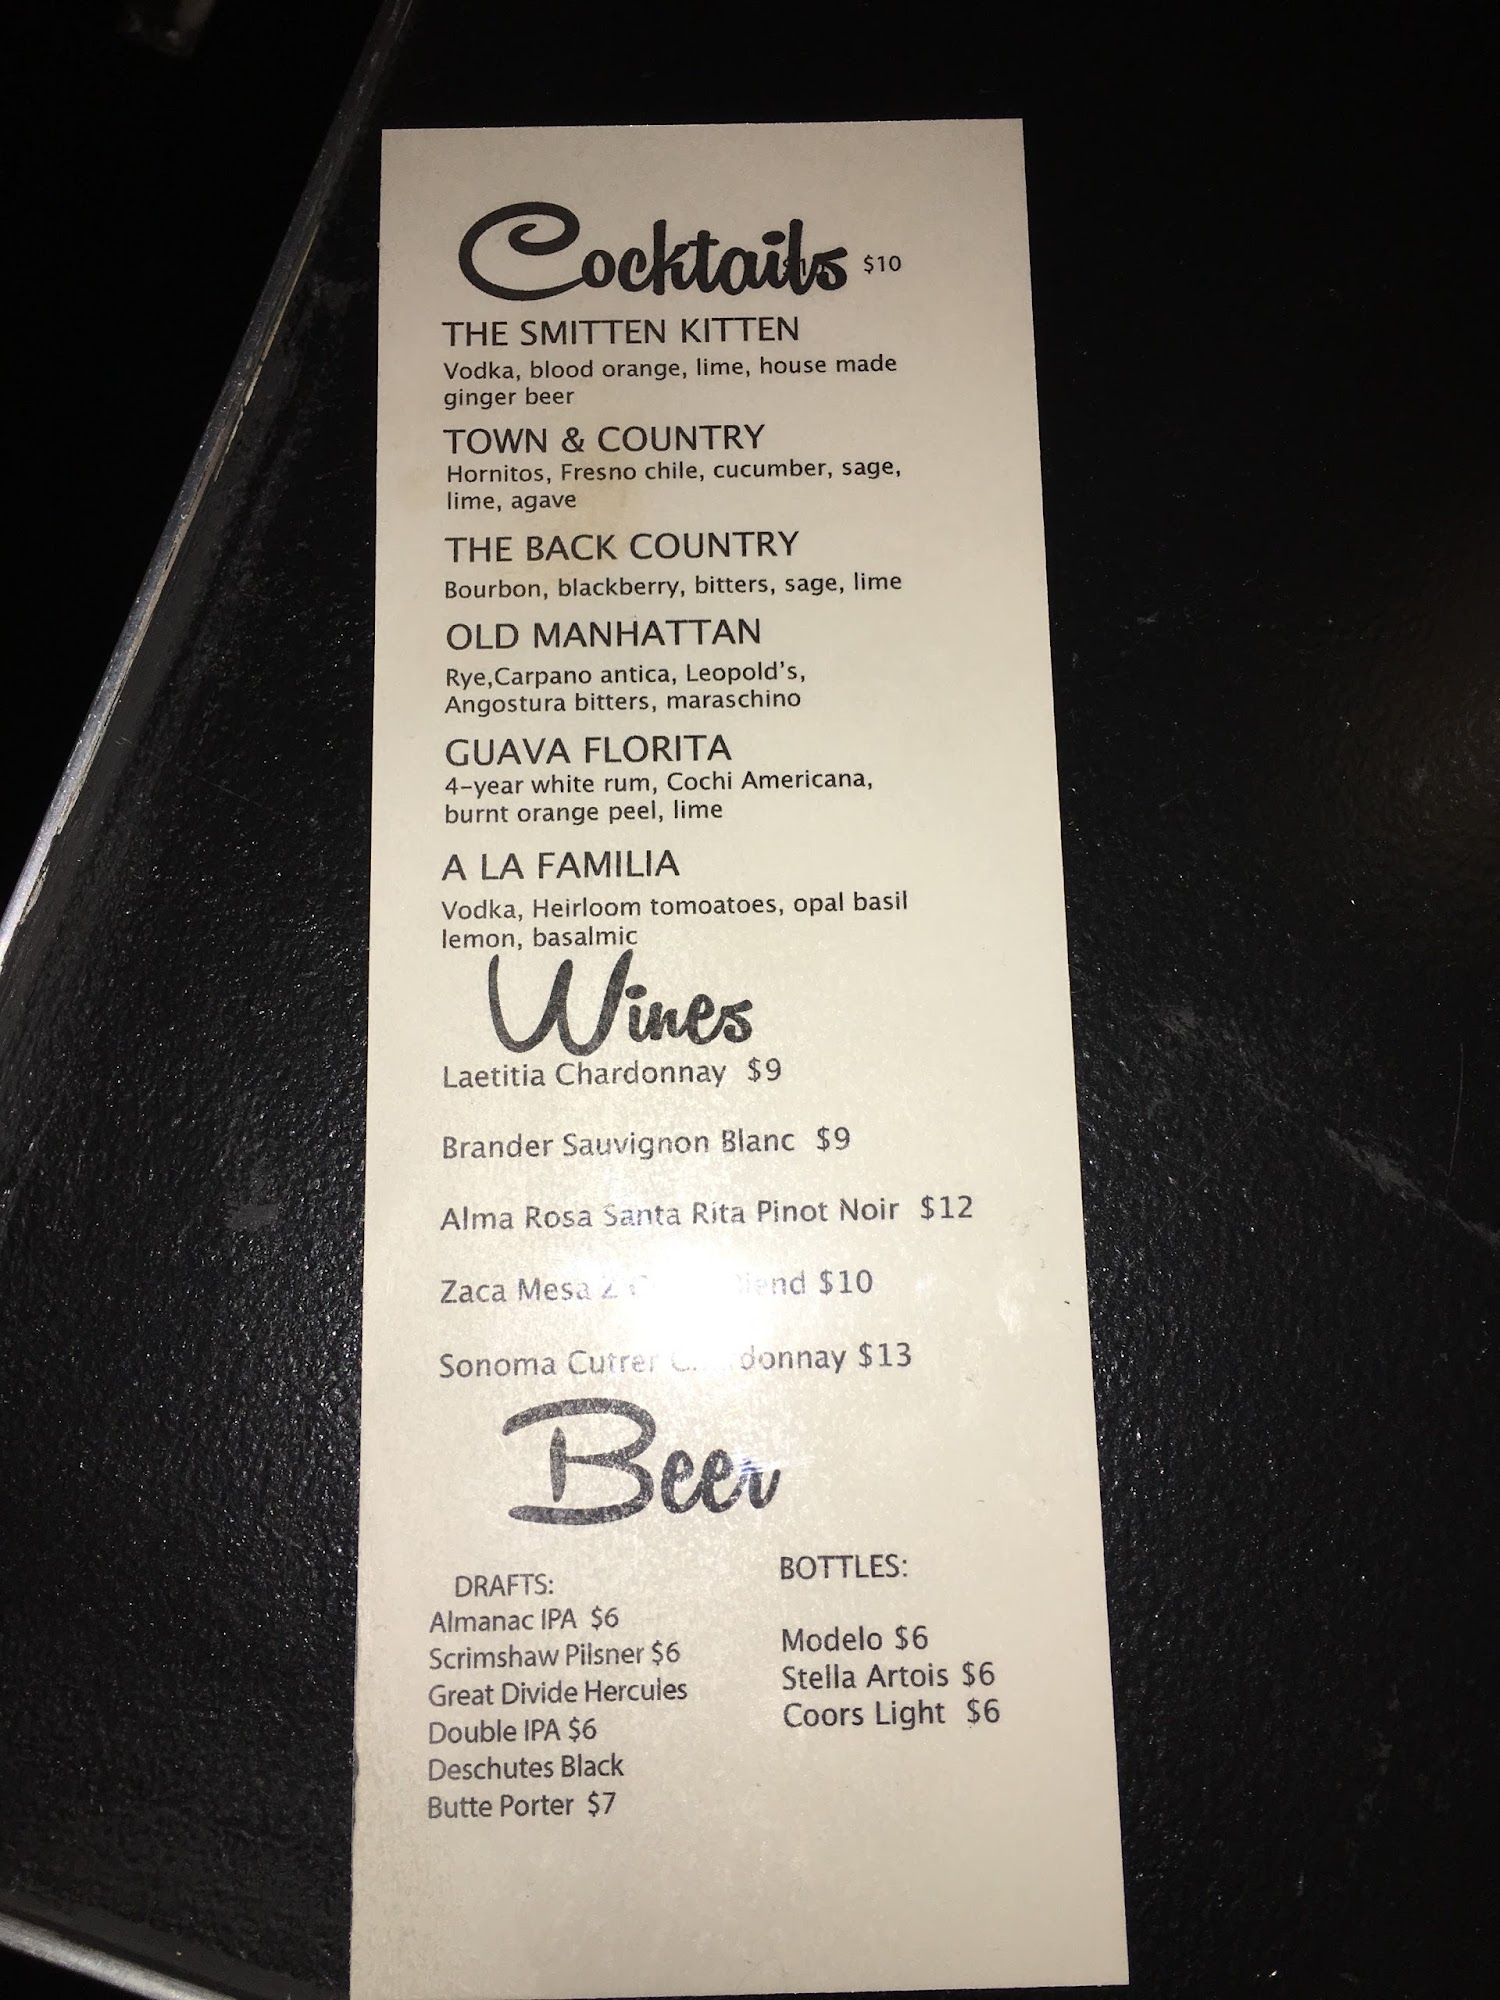 Cocktails $10
THE SMITTEN KITTEN
Vodka, blood orange, lime, house made
ginger beer
TOWN & COUNTRY
Hornitos, Fresno chile, cucumber, sage,
lime, agave
THE BACK COUNTRY
Bourbon, blackberry, bitters, sage, lime
OLD MANHATTAN
Rye,Carpano antica, Leopold's,
Angostura bitters, maraschino
GUAVA FLORITA
4-year white rum, Cochi Americana,
burnt orange peel, lime
A LA FAMILIA
Vodka, Heirloom tomoatoes, opal basil
lemon, basalmic
Wines
Laetitia Chardonnay $9
Brander Sauvignon Blanc $9
Alma Rosa Santa Rita Pinot Noir $12
Zaca Mesa Z Blend $10
Sonoma Cutrer Chardonnay $13
Beer
DRAFTS:
Almanac IPA $6
Scrimshaw Pilsner $6
Great Divide Hercules
Double IPA $6
Deschutes Black
Butte Porter $7
BOTTLES:
Modelo $6
Stella Artois $6
Coors Light $6